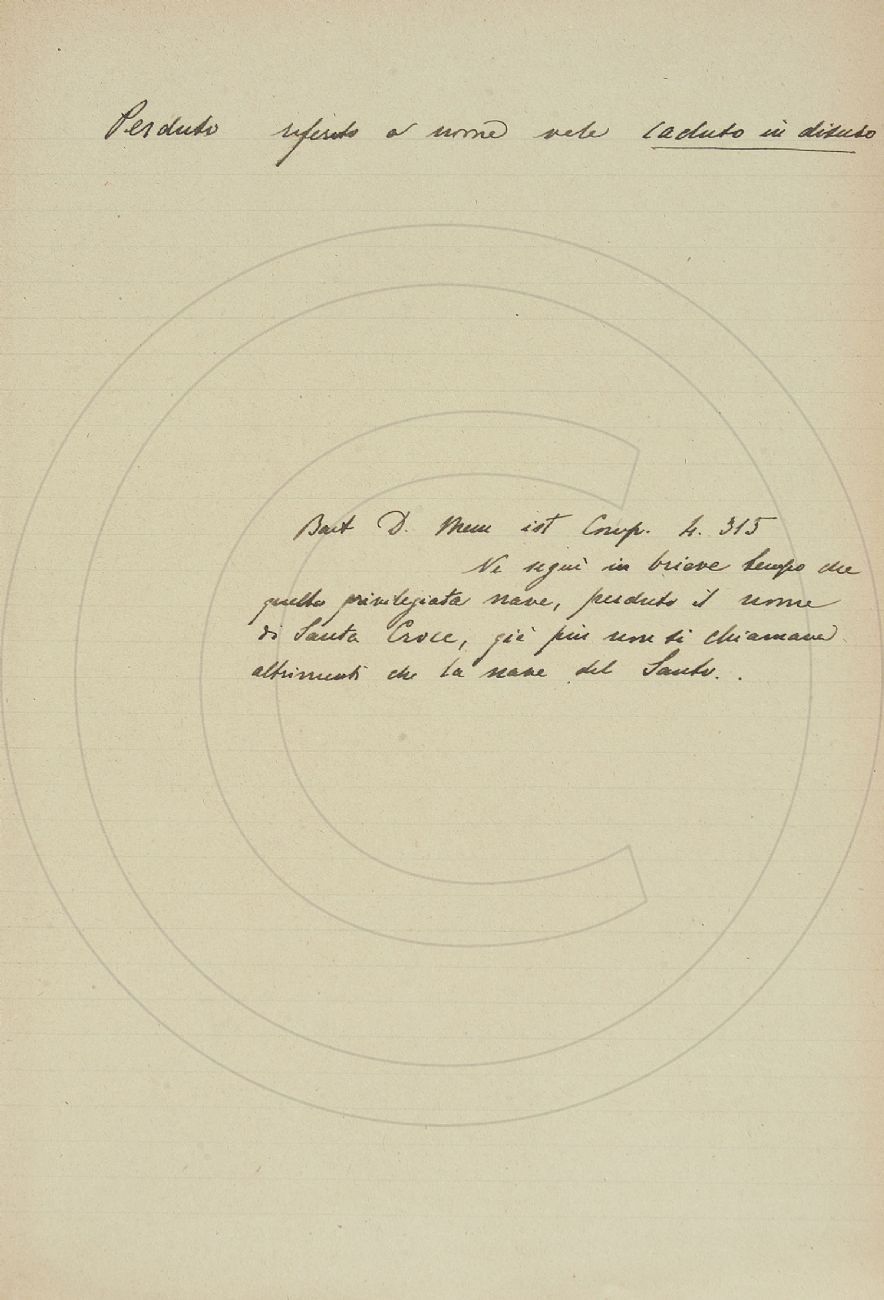 Perduto riferito a nome vale caduto in disuso
Bart D. Mem ist Comp. 4. 315
Ne seguì in brieve tempo che
quella privilegiata nave, perduto il nome
di Santa Croce, già più non si chiamava
altrimenti che la nave del Santo.